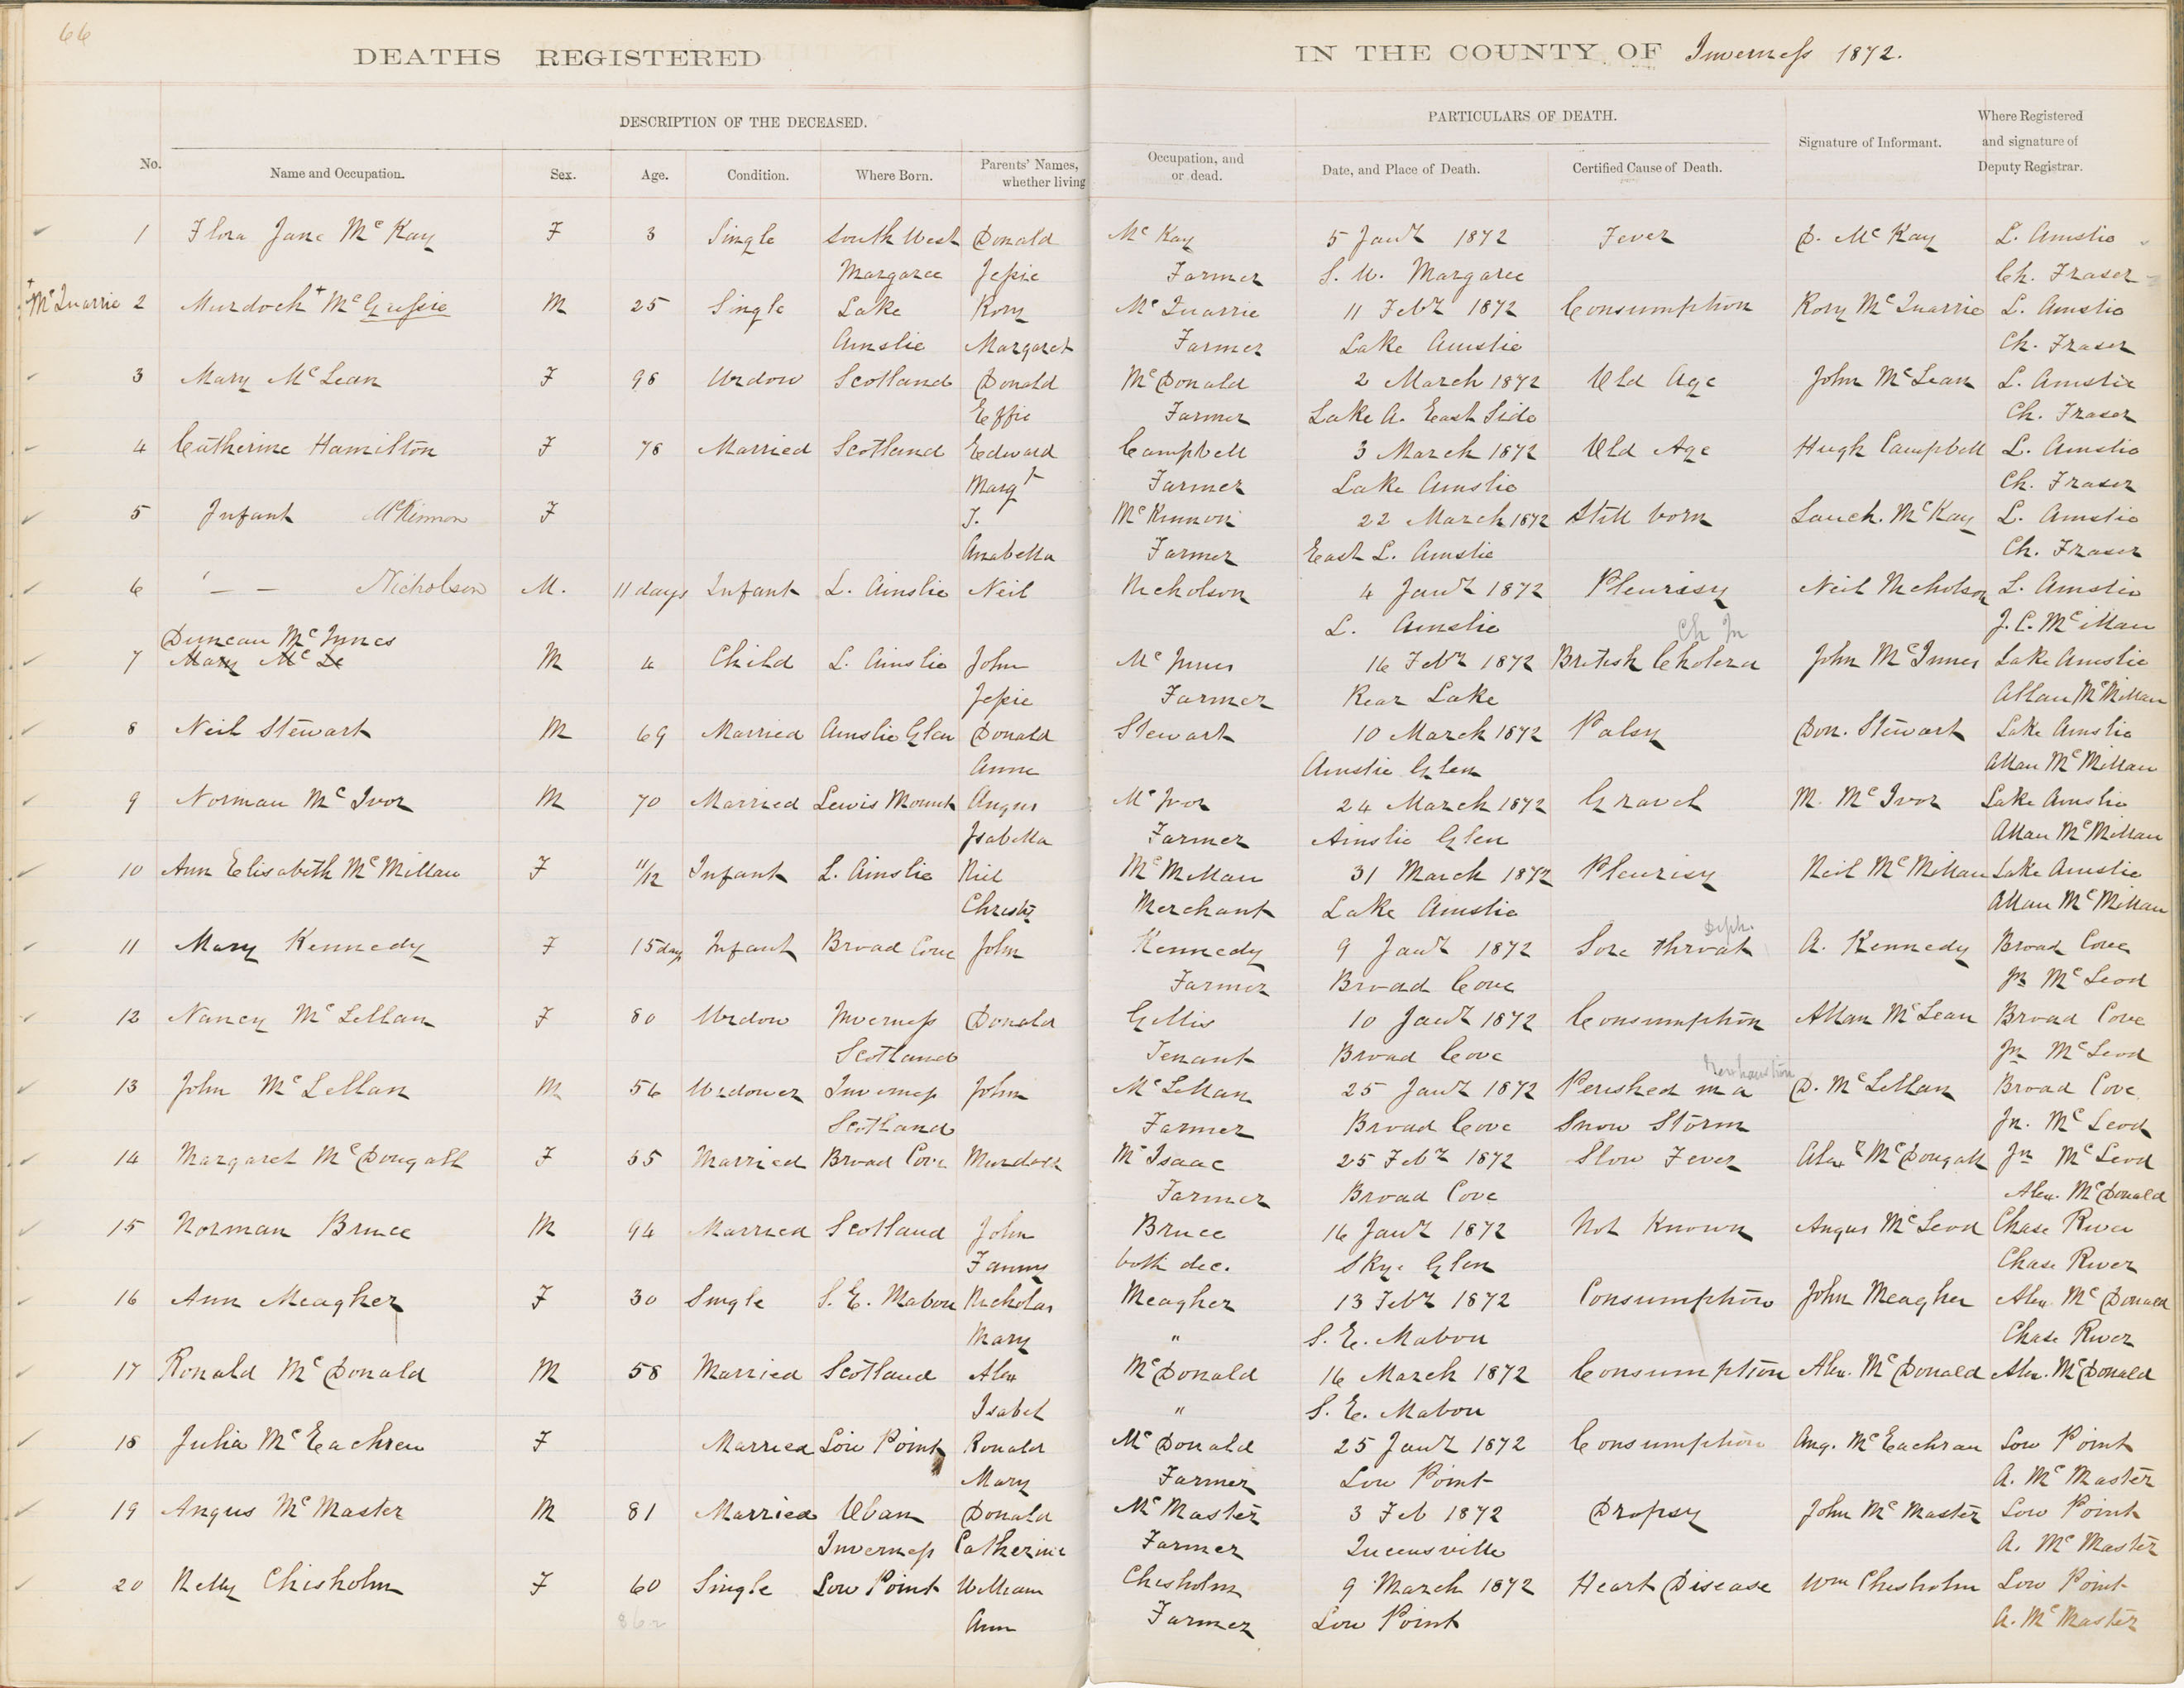 66
DEATHS REGISTERED IN THE COUNTY OF Inverness 1872.
DESCRIPTION OF THE DECEASED. PARTICULARS OF DEATH.
No. Name and Occupation. Sex. Age. Condition. Where Born. Parents' Names, whether living Occupation, and or dead. Date, and Place of Death. Certified Cause of Death. Signature of Informant. Where Registered and signature of Deputy Registrar.
1 Flora Jane McKay F 3 Single South West Donald McKay 5 Jany 1872 Fever D. McKay L. Ainslie
Margaree Jessie Farmer S. W. Margaree Ch. Fraser
+ McQuarrie 2 Murdoch + McGrussie M 25 Single Lake Rory McQuarrie 11 Feby 1872 Consumption Rory McQuarrie L. Ainslie
Ainslie Margaret Farmer Lake Ainslie Ch. Fraser
3 Mary McLean F 98 Widow Scotland Donald McDonald 2 March 1872 Old Age John McLean L. Ainslie
Effie Farmer Lake A. East Side Ch. Fraser
4 Catherine Hamilton F 78 Married Scotland Edward Campbell 3 March 1872 Old Age Hugh Campbell L. Ainslie
Margt Farmer Lake Ainslie Ch. Fraser
5 Infant McKinnon F J. McKinnon 22 March 1872 Still born Lauch. McKay L. Ainslie
Anabella Farmer East L. Ainslie Ch. Fraser
6 ' — — Nicholson M. 11 days Infant L. Ainslie Neil Nicholson 4 Jany 1872 Pleurisy Neil Nicholson L. Ainslie
L. Ainslie J. C. McMillan
Duncan McInnes Ch In
7 Mary Mc Le M 4 Child L. Ainslie John McInnes 16 Feby 1872 British Cholera John McInnes Lake Ainslie
Jessie Farmer Rear Lake Allan McMillan
8 Neil Stewart M 69 Married Ainslie Glen Donald Stewart 10 March 1872 Palsy Don. Stewart Lake Ainslie
Anne Ainslie Glen Allan McMillan
9 Norman McIvor M 70 Married Lewis Mount Angus McIvor 24 March 1872 Gravel M. McIvor Lake Ainslie
Isabella Farmer Ainslie Glen Allan McMillan
10 Ann Elisabeth McMillan F 11/12 Infant L. Ainslie Neil McMillan 31 March 1872 Pleurisy Neil McMillan Lake Ainslie
Christy Merchant Lake Ainslie Allan McMillan
Diph.
11 Mary Kennedy F 15 days Infant Broad Cove John Kennedy 9 Jany 1872 Sore throat A. Kennedy Broad Cove
Farmer Broad Cove Jn McLeod
12 Nancy McLellan F 80 Widow Inverness Donald Gillis 10 Jany 1872 Consumption Allan McLean Broad Cove
Scotland Tenant Broad Cove Jn McLeod
13 John McLellan M 56 Widower Inverness John McLellan 25 Jany 1872 Perished in a D. McLellan Broad Cove
Scotland Farmer Broad Cove Snow Storm Jn. McLeod
14 Margaret McDougall F 35 Married Broad Cove Murdoch McIsaac 25 Feby 1872 Slow Fever Alexr McDougall Jn McLeod
Farmer Broad Cove Alex. McDonald
15 Norman Bruce M 94 Married Scotland John Bruce 16 Jany 1872 Not Known Angus McLeod Chase River
Fanny both dec. Skye Glen Chase River
16 Ann Meagher F 30 Single S. E. Mabou Nicholas Meagher 13 Feby 1872 Consumption John Meagher Alex. McDonald
Mary " S. E. Mabou Chase River
17 Ronald McDonald M 58 Married Scotland Alex McDonald 16 March 1872 Consumption Alex. McDonald Alex. McDonald
Isabel " S. E. Mabou
18 Julia McEachren F Married Low Point Ronald McDonald 25 Jany 1872 Consumption Ang. McEachran Low Point
Mary Farmer Low Point A. McMaster
19 Angus McMaster M 81 Married Oban Donald McMaster 3 Feb 1872 Dropsy John McMaster Low Point
Inverness Catherine Farmer Queensville A. McMaster
20 Nelly Chisholm F 60 Single Low Point William Chisholm 9 March 1872 Heart Disease Wm Chisholm Low Point
862 Ann Farmer Low Point A. McMaster